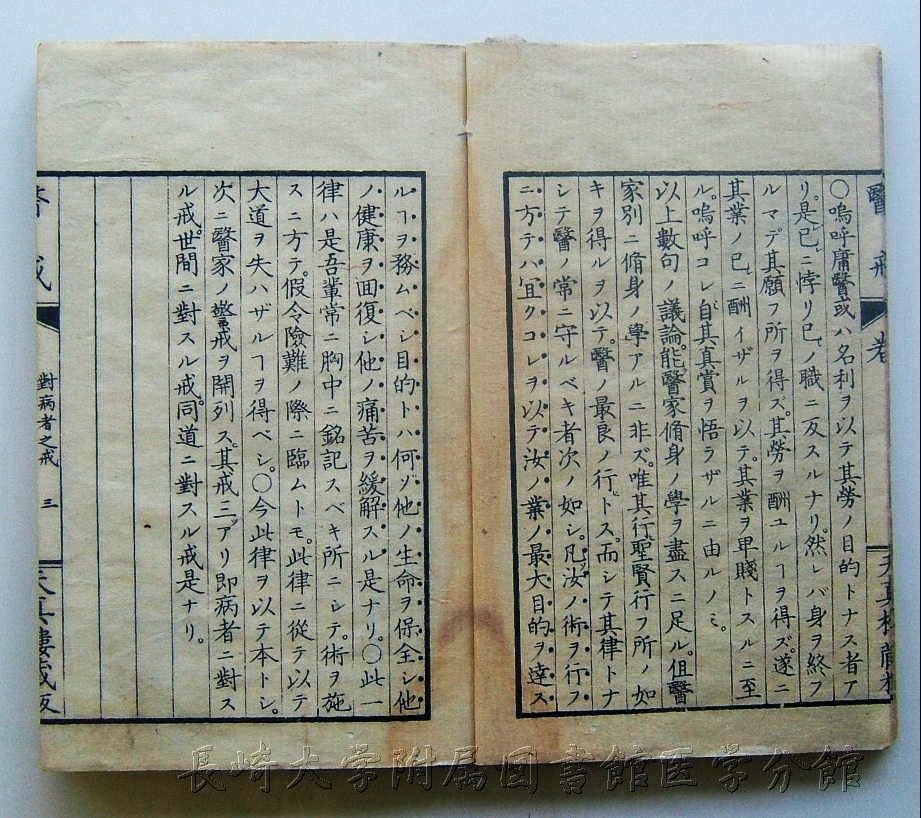 醫戒 卷
天真樓藏板
○嗚呼庸醫或ハ名利ヲ以テ其勞ノ目的トナス者ア
リ。是已ニ悖リ已ノ職ニ反スルナリ。然レバ身ヲ終フ
ルマデ其願フ所ヲ得ズ。其勞ヲ酬ユルヿヲ得ズ。遂ニ
其業ノ已ニ酬イザルヲ以テ。其業ヲ卑賤トスルニ至
ル。嗚呼コレ自其真賞ヲ悟ラザルニ由ルノミ。
以上數句ノ議論。能醫家脩身ノ學ヲ盡スニ足ル。但醫
家別ニ脩身ノ學アルニ非ズ。唯其行聖賢行フ所ノ如
キヲ得ルヲ以テ。醫ノ最良ノ行トス。而シテ其律トナ
シテ醫ノ常ニ守ルベキ者次ノ如シ。凡汝ノ術ヲ行フ
ニ方テハ宜クコレヲ以テ汝ノ業ノ最大目的ヲ達ス
ルヿヲ務ムベシ目的トハ何ゾ他ノ生命ヲ保全シ他
ノ健康ヲ回復シ他ノ痛苦ヲ緩解スル是ナリ。○此一
律ハ是吾輩常ニ胸中ニ銘記スベキ所ニシテ。術ヲ施
スニ方テ。假令險難ノ際ニ臨ムトモ。此律ニ從テ以テ
大道ヲ失ハザルヿヲ得ベシ。○今此律ヲ以テ本トシ。
次ニ醫家ノ警戒ヲ開列ス。其戒三アリ即病者ニ對ス
ル戒。世間ニ對スル戒。同道ニ對スル戒是ナリ。
醫戒
對病者之戒 三
天真樓藏板
長崎大学附属図書館医学分館